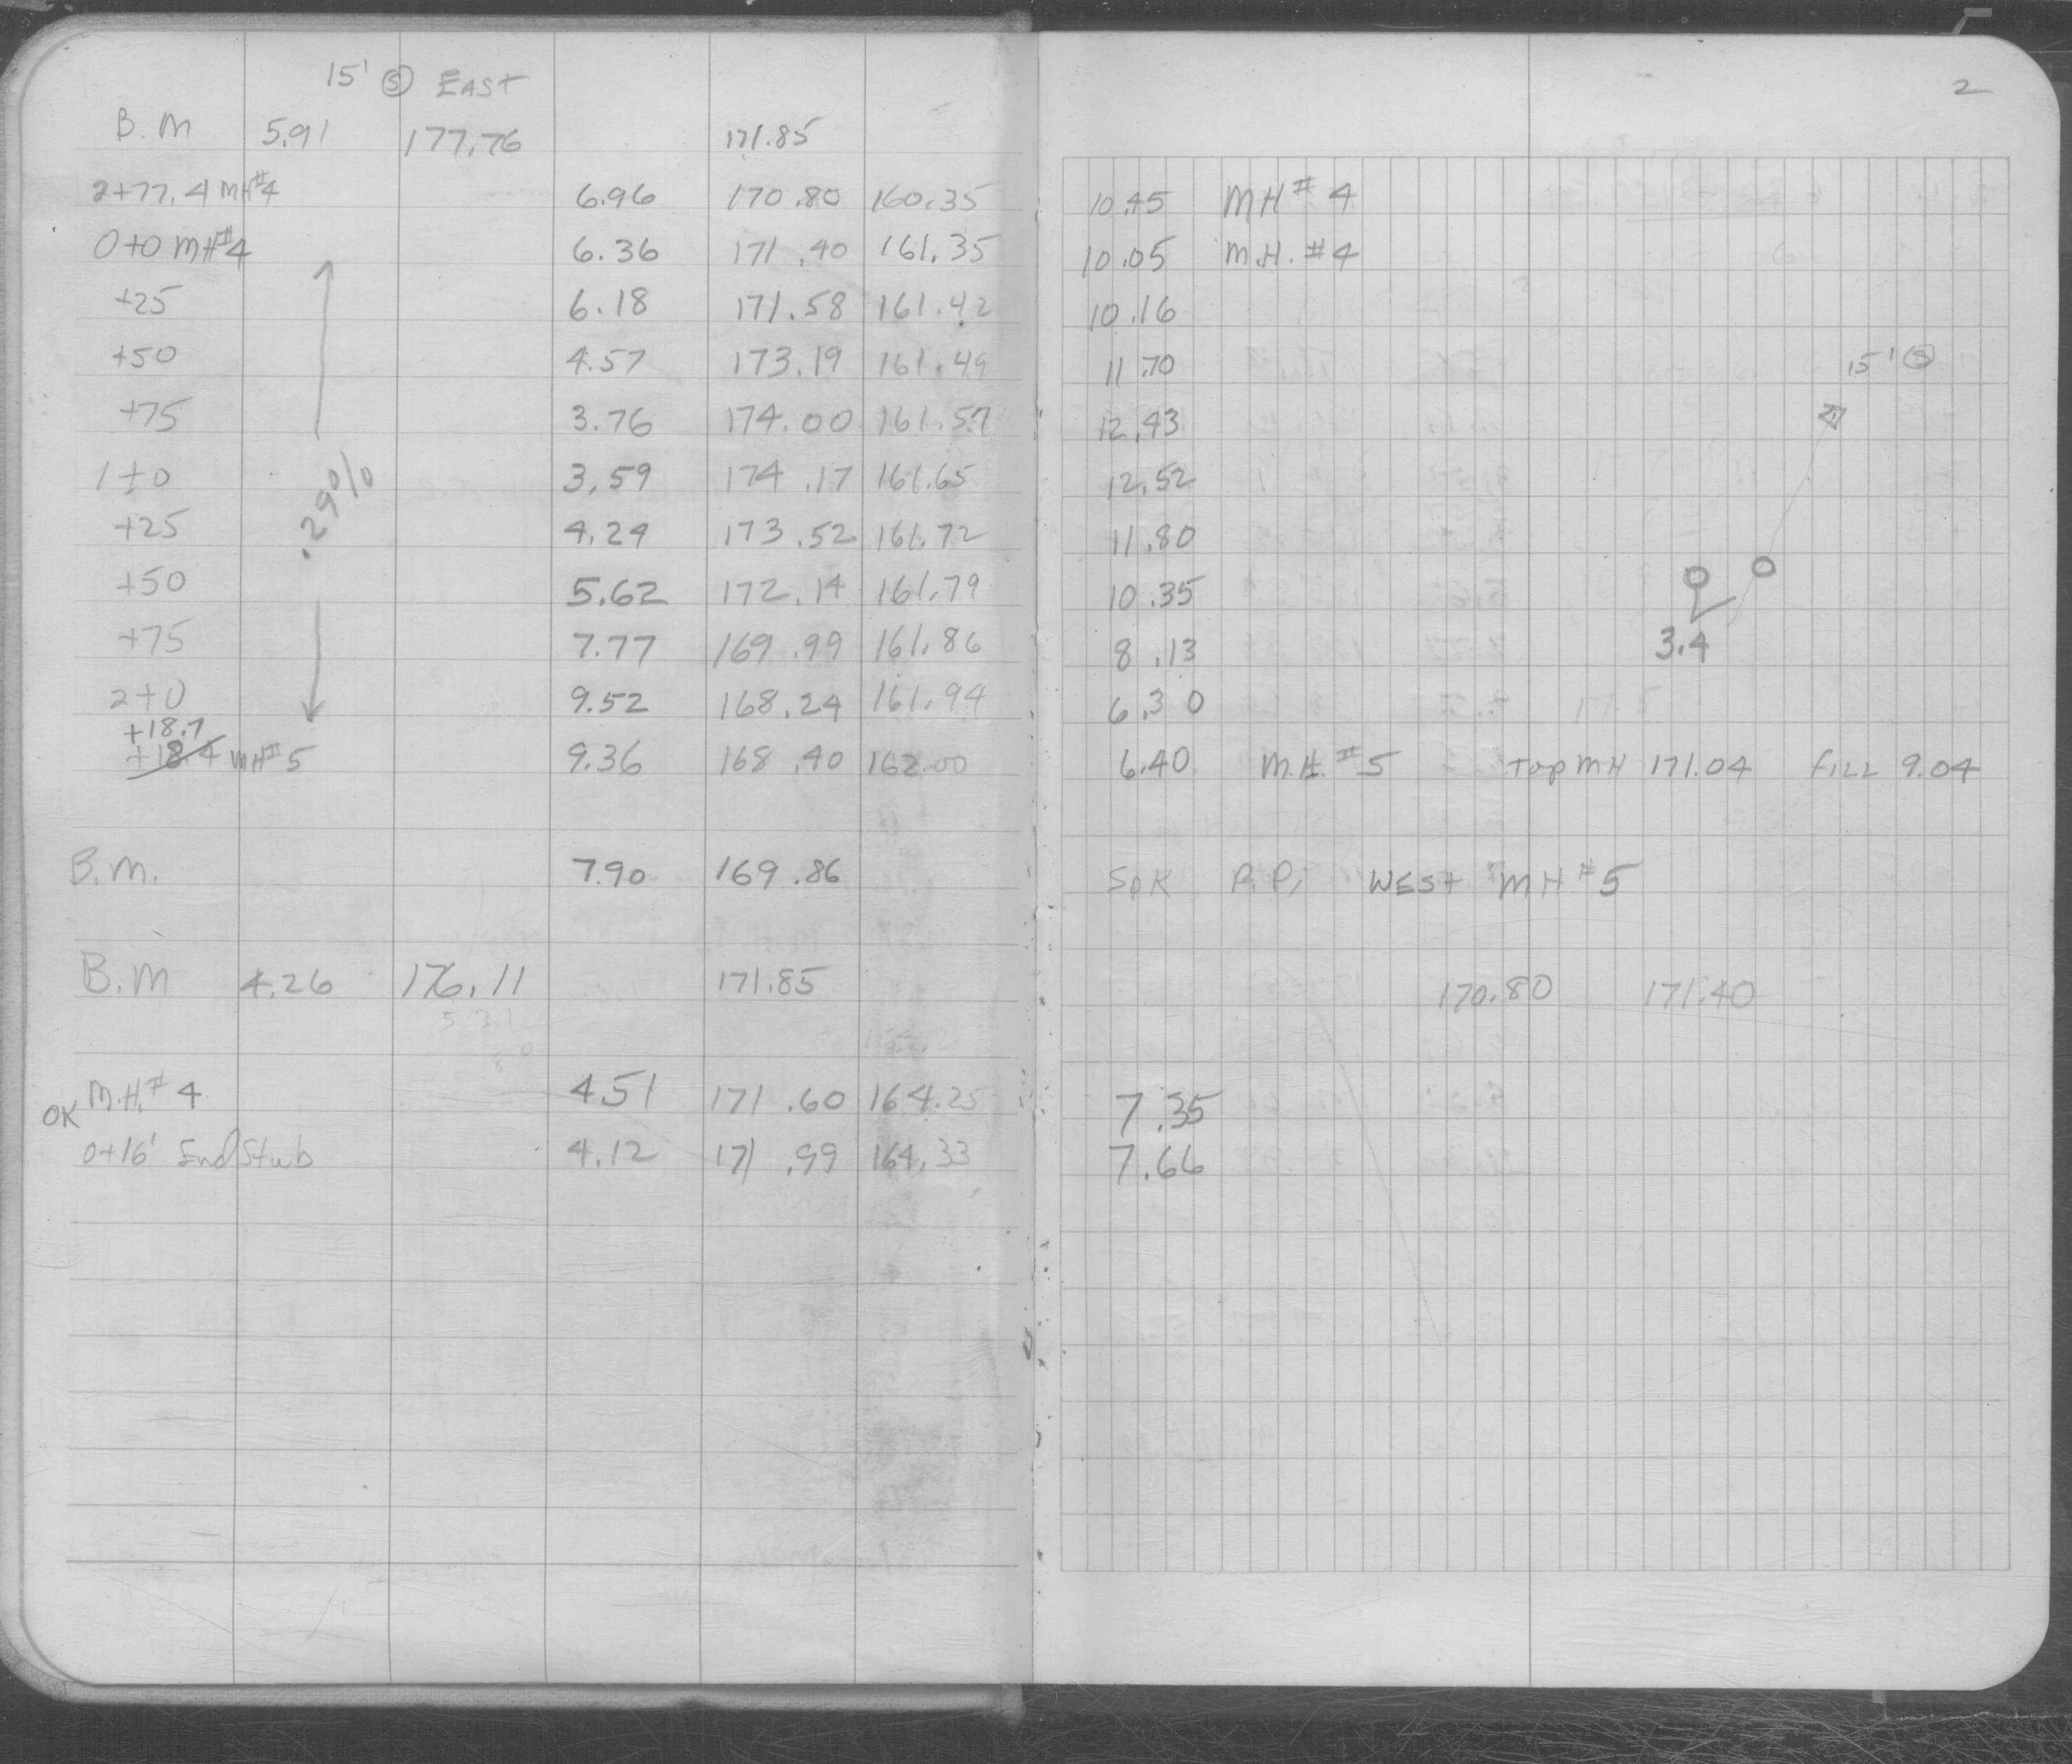 15' Ⓢ EAST
2
B.M 5.91 177.76 171.85
2+77.4 MH#4 6.96 170.80 160.35 10.45 MH # 4
0+0 MH#4 6.36 171.40 161.35 10.05 M.H. #4
+25 6.18 171.58 161.42 10.16
+50 4.57 173.19 161.49 11.70 15' Ⓢ
+75 3.76 174.00 161.57 12.43
1+0 3.59 174.17 161.65 12.52
.29%
+25 4.24 173.52 161.72 11.80
+50 5.62 172.14 161.79 10.35
+75 7.77 169.99 161.86 8.13 3.4
2+0 9.52 168.24 161.94 6.30
+18.7
+18.4 MH#5 9.36 168.40 162.00 6.40 M.H. #5 Top MH 171.04 FILL 9.04
B.M. 7.90 169.86 SPK P.P. WEST MH #5
B.M 4.26 176.11 171.85 170.80 171.40
OK M.H.# 4 4.51 171.60 164.25 7.35
0+16' End Stub 4.12 171.99 164.33 7.66